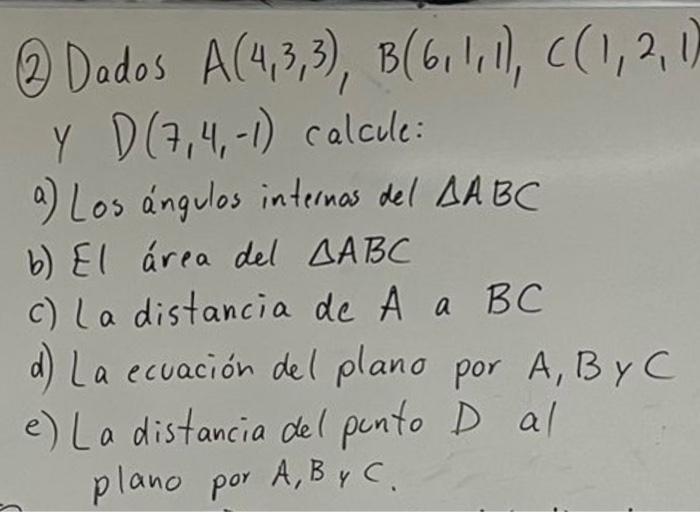 ② Dados A(4,3,3), B(6,1,1), C(1,2,1)
y D(7,4,-1) calcule:
a) Los ángulos internos del ΔABC
b) El área del ΔABC
c) La distancia de A a BC
d) La ecuación del plano por A, B y C
e) La distancia del punto D al
plano por A, B y C.